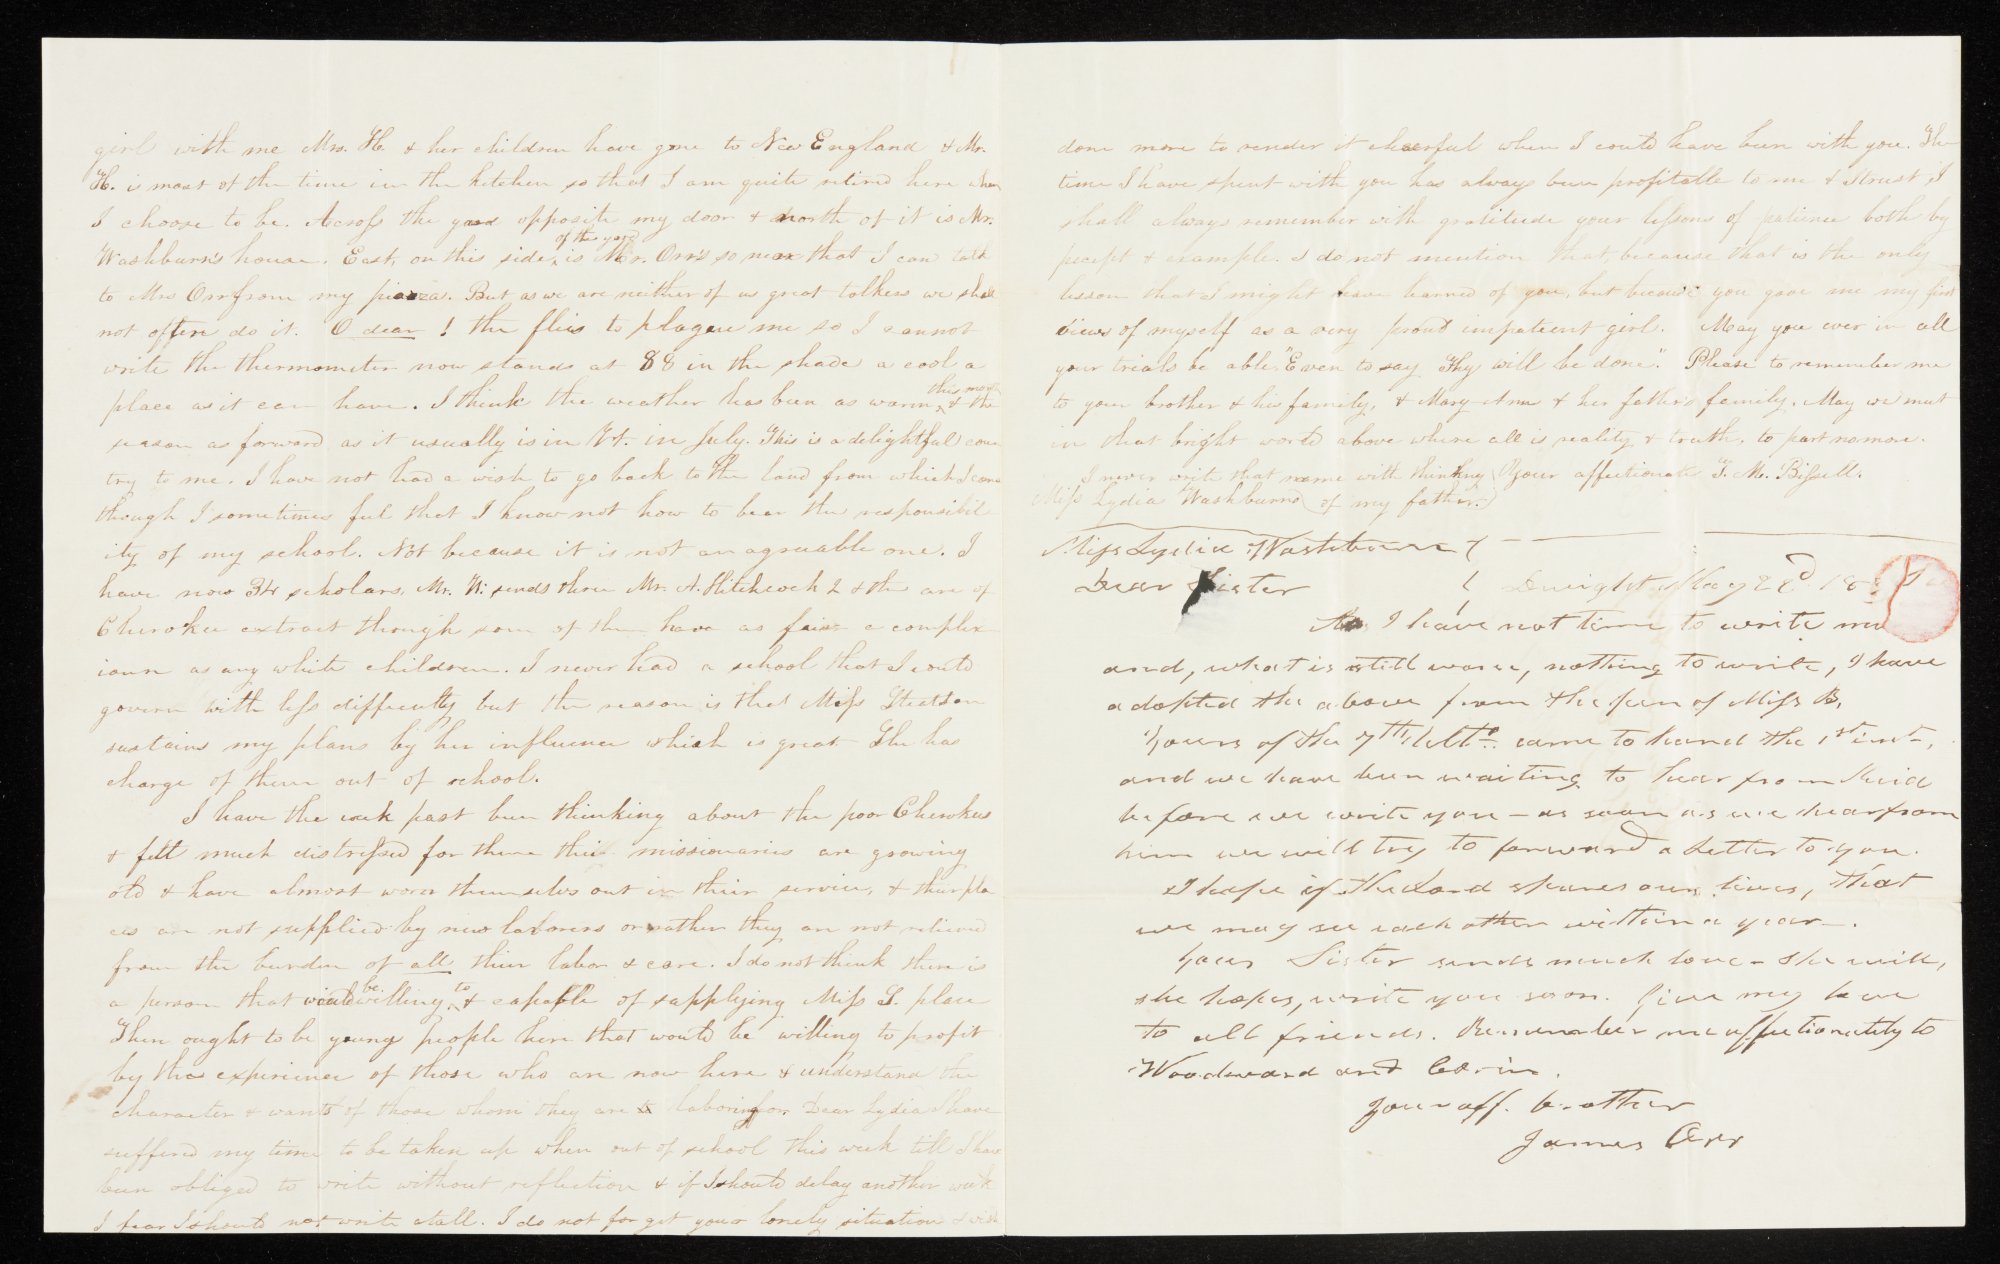 girl with me Mrs. H. & her children have gone to New England & Mr.
H. is most of the time in the kitchen so that I am quite retired here when
I choose to be. Across the yard opposite my door & north of it is Mr.
Washburn's house. East, on this side of the yard is Mr. Orr's so near that I can talk
to Mrs Orr from my piazza. But as we are neither of us great talkers we shall
not often do it. O dear! the flies to plague me so I cannot
write the thermometer now stands at 88 in the shade a cool a
place as it can have. I think the weather has been as warm this month & the
season as forward as it usually is in Vt. in July. This is a delightful coun
try to me. I have not had a wish to go back to the land from which I came
though I sometimes feel that I know not how to bear the responsibil
ity of my school. Not because it is not an agreeable one. I
have now 34 scholars, Mr. W. sends three Mr. A. Hitchcock 2 & the are of
Cherokee extract though som of them have as fair a complex
ioun as any white children. I never had a school that I could
govern with less difficulty but the reason is that Miss Stetson
sustains my plans by her influence which is great She has
charge of them out of school.
I have the week past been thinking about the poor Cherokees
& felt much distressed for them their missionaries are growing
old & have almost worn themselves out in their service, & their pla
ces are not supplied by new laborers or rather they are not relieved
from the burden of all their labor & care. I do not think there is
a person that would be willing to & capable of supplying Miss S. place
There ought to be young people here that would be willing to profit
by the experience of those who are now here & understand the
character & wants of those whom they are laboring for. Dear Lydia I have
suffered my time to be taken up when out of school this week till I have
been obliged to write without reflection & if I should delay another week
I fear I should not write atall. I do not forget your lonely situation & wish
done more to render it cheerful when I could have been with you. The
time I have spent with you has always been profitable to me & I trust I
shall always remember with gratitude your lessons of patience both by
precept & example. I do not mention that, because that is the only
lesson that I might have learned of you, but because you gave me my first
views of myself as a very proud impatient girl. May you ever in all
your trials be able, "Even to say Thy will be done". Please to remember me
to your brother & his family, & Mary Ann & her father's family. May we meet
in that bright world above where all is reality & truth. to part no more.
I never write that name with thinking Your affectionate T. M. Bissell.
Miss Lydia Washburn of my father.)
Miss Lydia Washburn
Dear Sister Dwight May 22d 18
As I have not time to write
and, what is still worse, nothing to write, I have
adopted the above from the pen of Miss B.
Yours of the 7th. Ulto. came to hand the 1st inst,
and we have been waiting to hear from
before we write you - as soon as we hear from
him we will try to forward a letter to you.
I hope if the Lord spares our lives, that
we may see each other within a year -.
Your Sister sends much love - She will,
she hopes, write you soon. Give my love
to all friends. Remember me affectionately to
Woodward and
Your aff. brother
James Orr